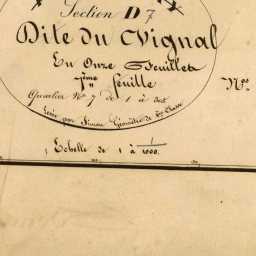 Section D 7
Dite du Vignal
En Onze Feuilles
7ème feuille
Quartier No 7 de 1 à
Levée par Simon Géomètre de 1re Classe
Echelle de 1 à 1/1000.